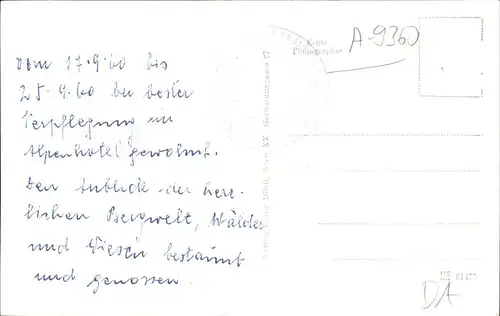 vom 17.9.60 bis
25.9.60 bei bester
Verpflegung im
Alpenhotel gewohnt.
Den Anblick der herr-
lichen Bergwelt, Wälder
und Wiesen bestaunt
und genossen.
Echte
Photographie
A-9360
DA